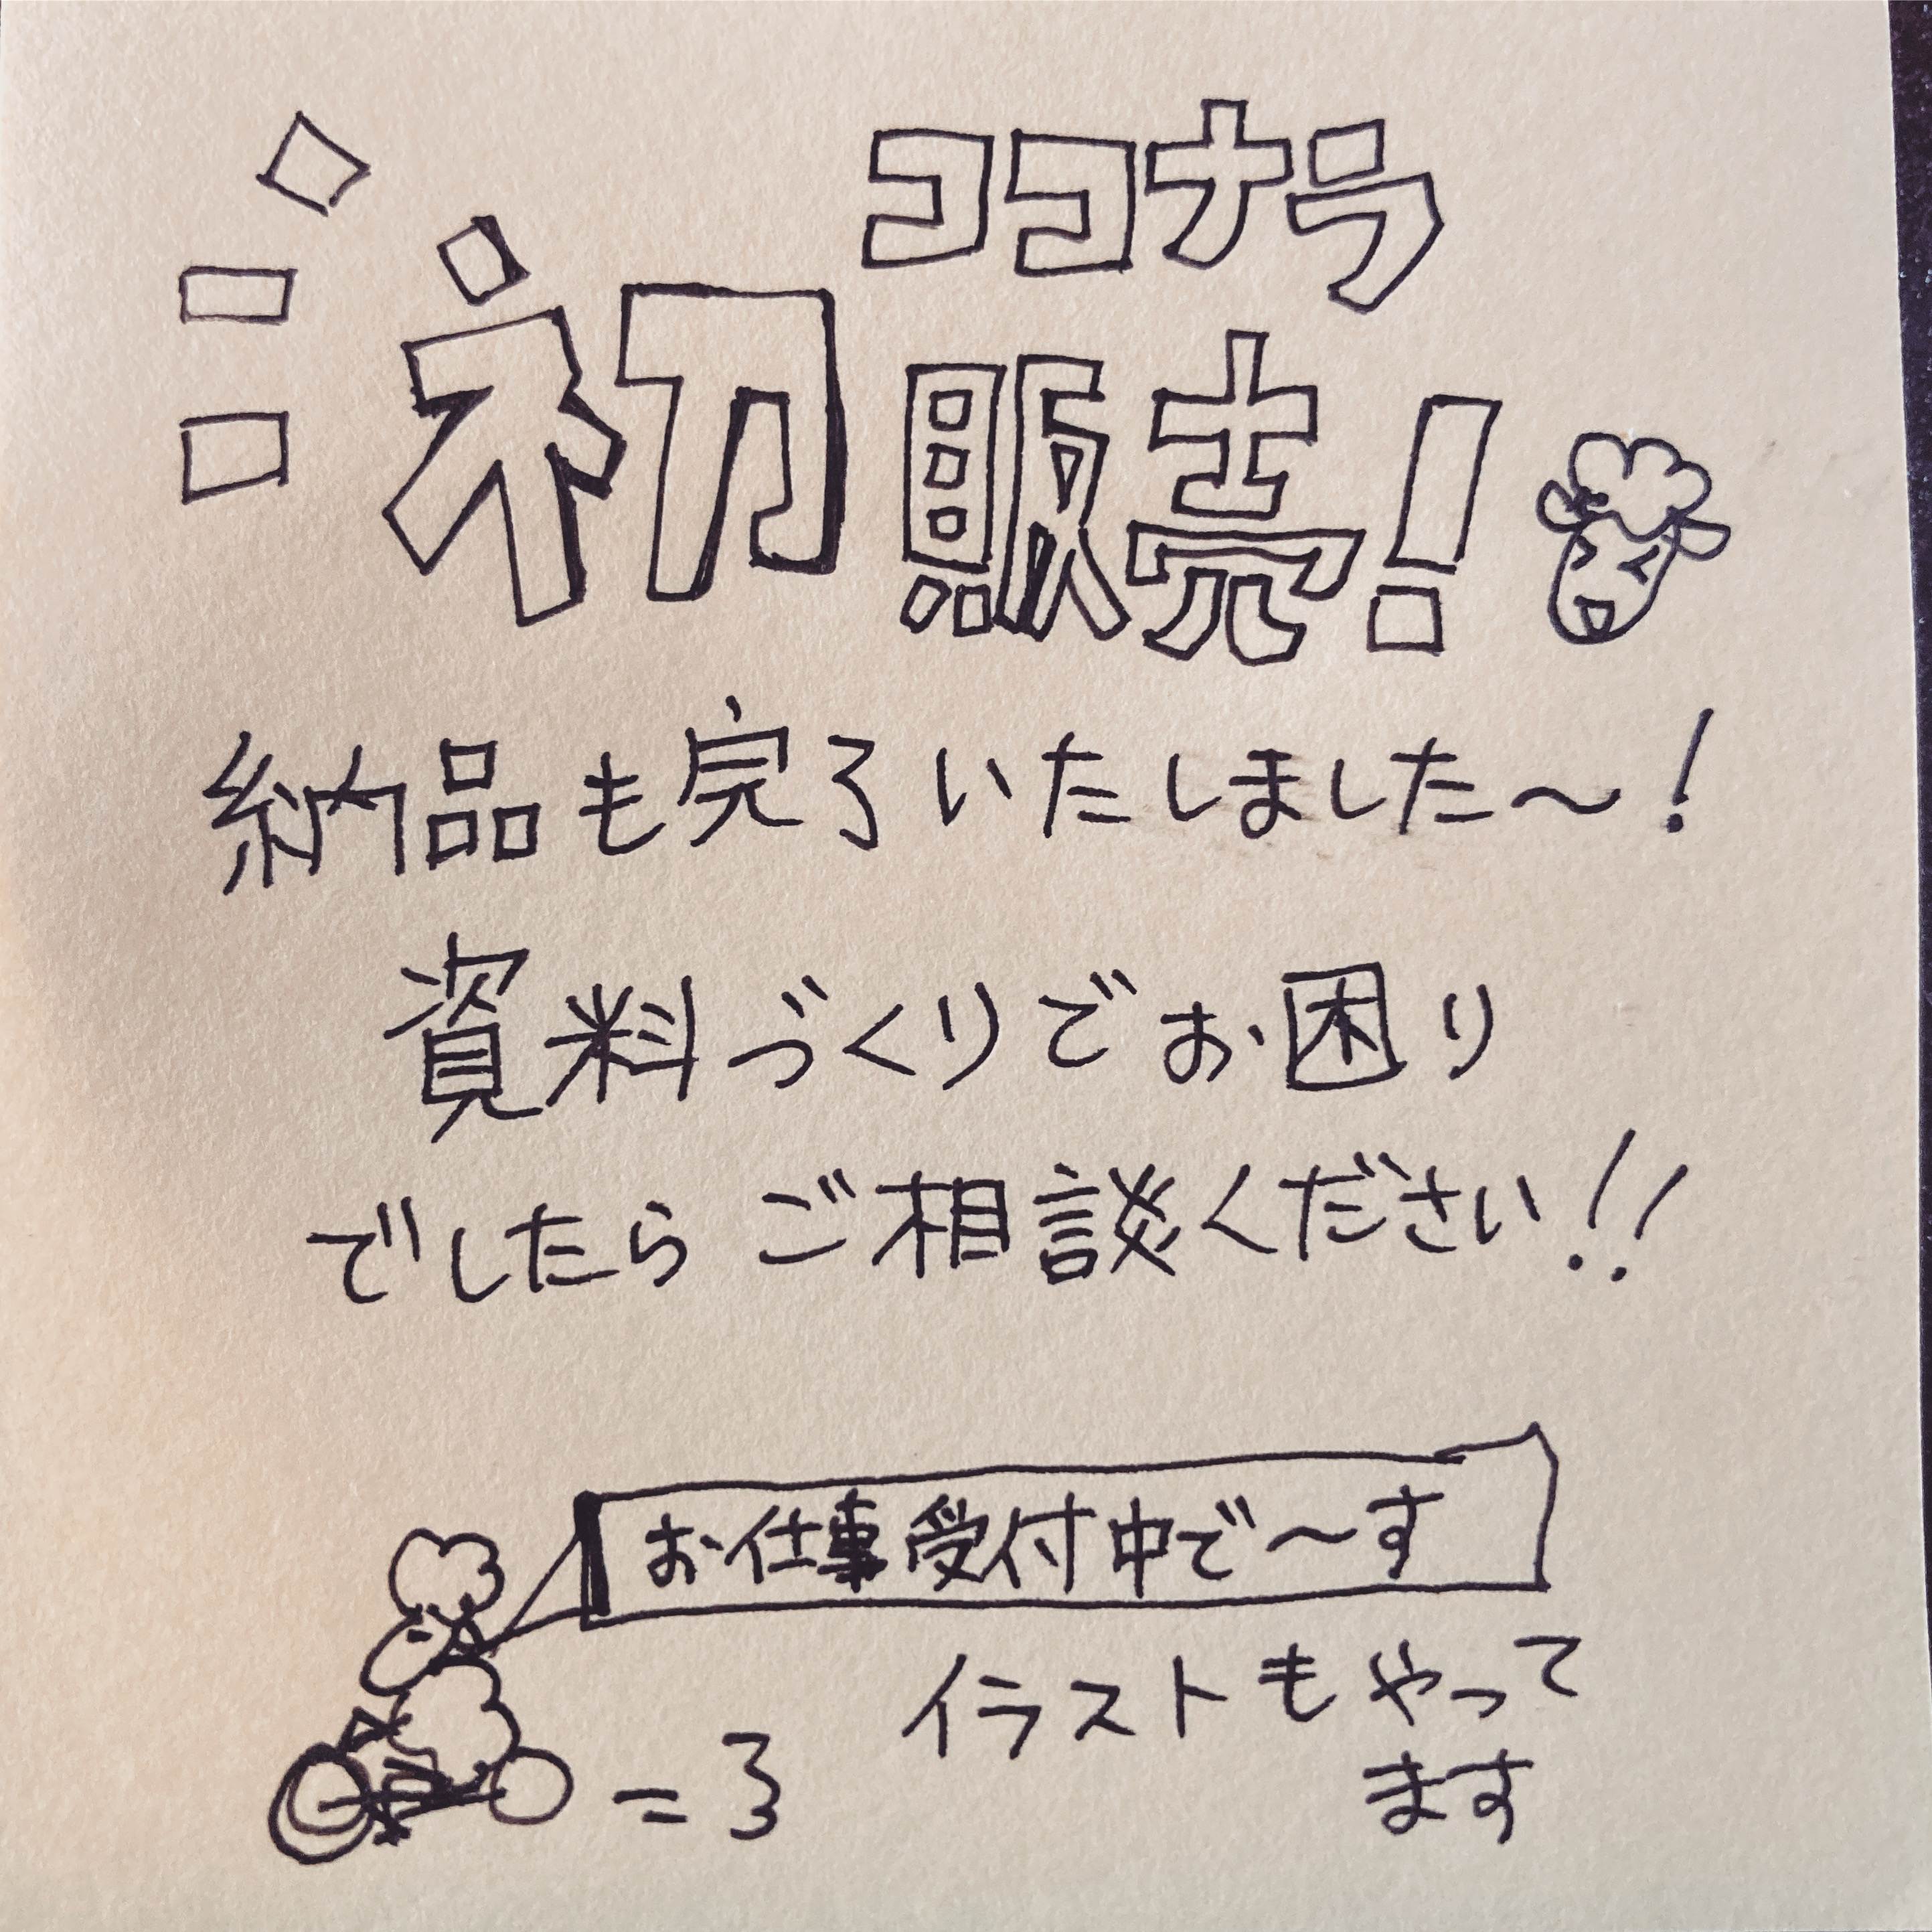 ココナラ
初販売!
納品も完了いたしました〜!
資料づくりでお困り
でしたらご相談ください!!
お仕事受付中で〜す
イラストもやって
ます